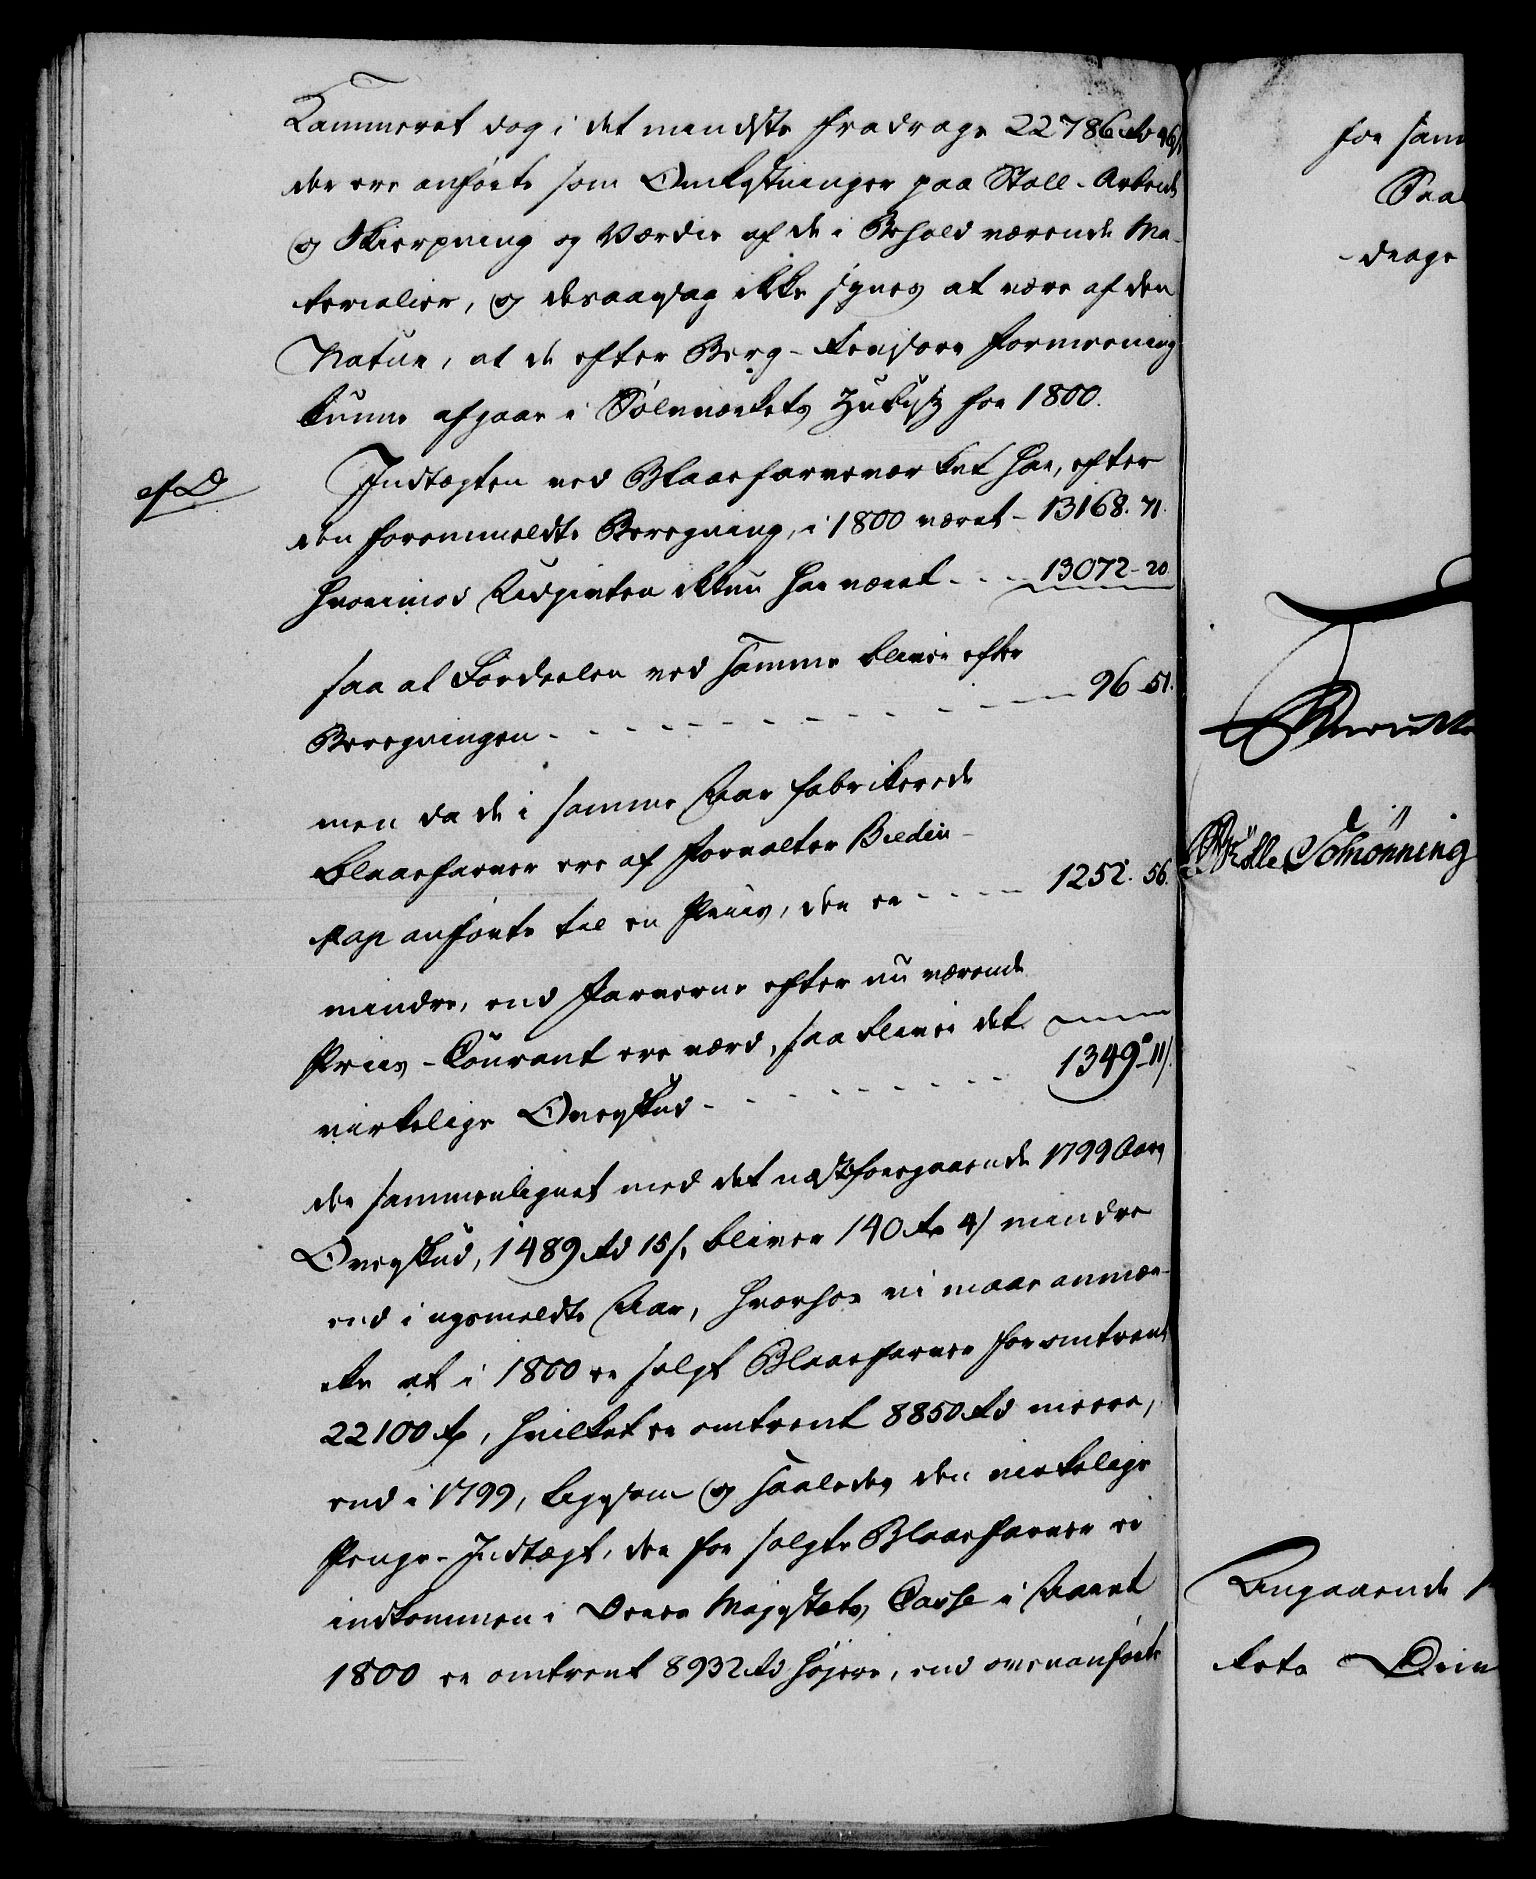 Kammeret dog i det mindste fradrage 22786 rd 46 s
der ere anførte som Omkostninger paa Stoll-Arbeide
og Skierpning og Værdie af de i Behold værende Ma-
terialier, og desaarsag ikke synes at være af den
Natur, at de efter Berg- formeening
kunne afgaae i Sølvverkets Zubus for 1800.
Indtægten ved Blaafarveværket har, efter
den foranmeldte Beregning, i 1800 været - 13168. 71.
hvorimod Udgivten ikkun har været - - - 13072 - 20
saa at Fordeelen ved samme bliver efter
Beregningen - - - - - 96 - 51.
men da de i samme Aar fabrikerede
Blaafarver ere af Forvalter Bieden-
kap anførte til en Priis, der er - - - - 1252. 56.
mindre, end Farverne efter nu værende
Priis-Courant ere værd, saa bliver det
virkelige Overskud - - - - - 1349 - 11 s.
der sammenlignet med det næstforegaaende 1799 Aars
Overskud, 1489 rd 15 s, bliver 140 rd 4 s mindre
end i ugemeldte Aar, hvorhos vi maae anmær-
ke at i 1800 er solgt Blaafarver for omtrent
22100 rd, hvilket er omtrent 8850 rd meere,
end i 1799, ligesom og saaledes den virkelige
Penge-Indtægt, der for solgte Blaafarver er
indkommen i Deres Majestæts Casse i Aaret
1800 er omtrent 8932 rd højere, end ovenanførte
for sam
Saa
drage
Schønning
Angaaende
kets Driv